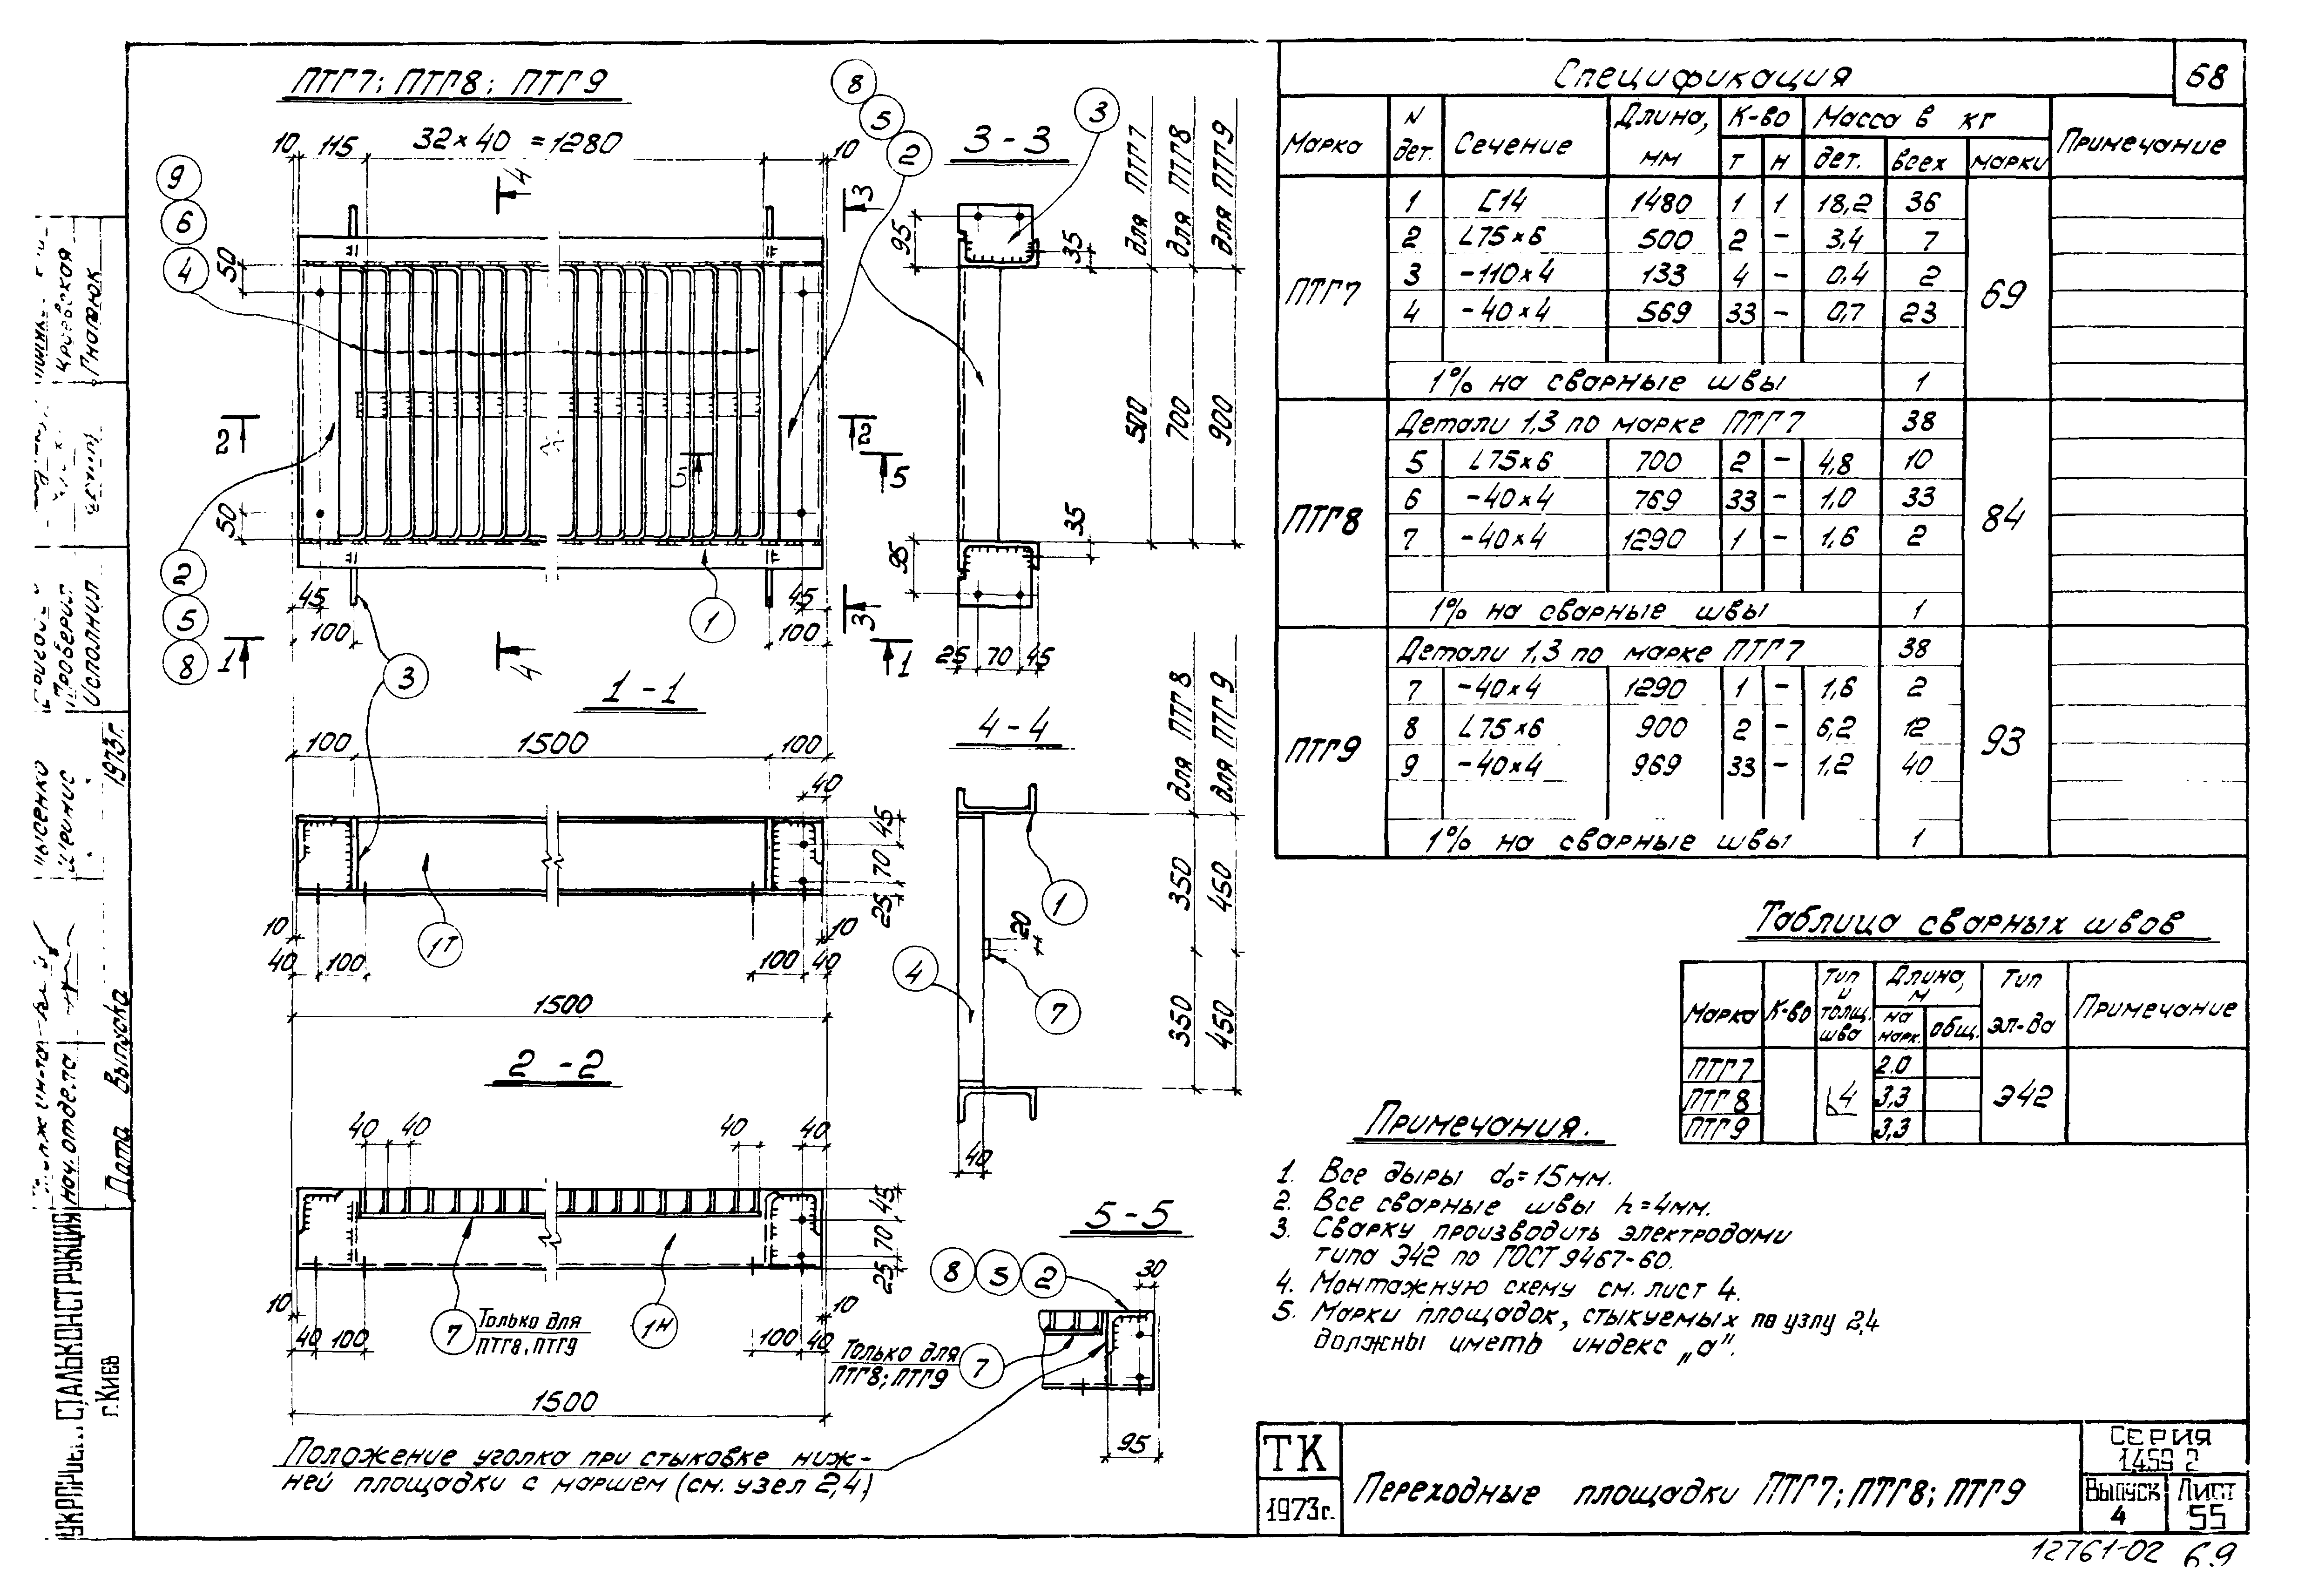 ПТГ7; ПТГ8; ПТГ9
10 115 32×40 =1280 10
9
6
4
8
5
2
3
3-3
для ПТГ7
для ПТГ8
для ПТГ9
4 4
3 3
50
50
2 2
5 5
1 1
95
35
500
700
900
95
35
25 70 45
2
5
8
45
100
45
100
1
3
1-1
100 1500 100
40
45
70
25
1Т
10 10
40 100 100 40
1500
4-4
для ПТГ8
для ПТГ9
350
450
350
450
20
1
4
7
40
2-2
40 40 40 40
45
70
25
10 10
40 100 100 40
7 Только для
ПТГ8, ПТГ9
1Н
1500
5-5
8 5 2
30
Только для
ПТГ8; ПТГ9
7
95
Положение уголка при стыковке ниж-
ней площадки с маршем (см. узел 2,4)
Спецификация
68
Марка N дет. Сечение Длина, мм К-во Масса в кг Примечание
т н дет. всех марки
ПТГ7 69
1 [14 1480 1 1 18,2 36
2 L75×6 500 2 - 3,4 7
3 -110×4 133 4 - 0,4 2
4 -40×4 569 33 - 0,7 23
1% на сварные швы 1
ПТГ8 84
Детали 1,3 по марке ПТГ7 38
5 L75×6 700 2 - 4,8 10
6 -40×4 769 33 - 1,0 33
7 -40×4 1290 1 - 1,6 2
1% на сварные швы 1
ПТГ9 93
Детали 1,3 по марке ПТГ7 38
7 -40×4 1290 1 - 1,6 2
8 L75×6 900 2 - 6,2 12
9 -40×4 969 33 - 1,2 40
1% на сварные швы 1
Таблица сварных швов
Марка К-во Тип и толщ. шва Длина, м Тип эл-да Примечание
на марк. общ.
ПТГ7 2.0
ПТГ8 4 3,3 Э42
ПТГ9 3,3
Примечания.
1. Все дыры d₀=15мм.
2. Все сварные швы h=4мм.
3. Сварку производить электродами
типа Э42 по ГОСТ 9467-60.
4. Монтажную схему см. лист 4.
5. Марки площадок, стыкуемых по узлу 2,4
должны иметь индекс „а".
ТК
1973г.
Переходные площадки ПТГ7; ПТГ8; ПТГ9
Серия
1.459 2
Выпуск
4
Лист
55
12761-02 69
Гнатюк
Проверил
Исполнил
1973г.
нач. отдела
Дата выпуска
СТАЛЬКОНСТРУКЦИЯ
г. Киев